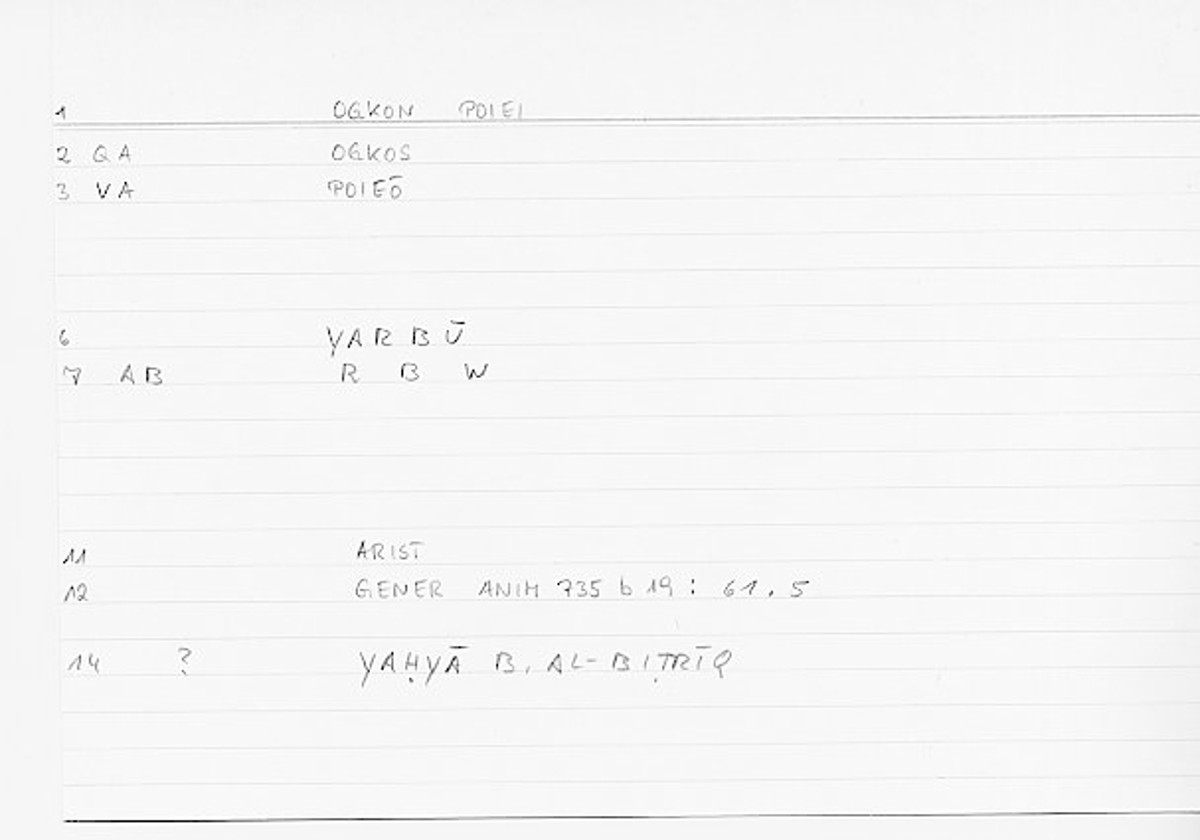 1 OGKON POIEI
2 QA OGKOS
3 VA POIEŌ
6 YARBŪ
7 AB R B W
11 ARIST
12 GENER ANIM 735 b 19 : 61. 5
14 ? YAḤYĀ B. AL-BIṬRĪQ